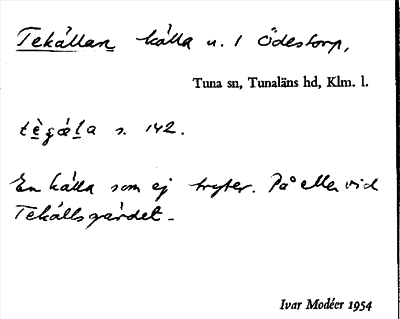 Tekällan källa n. 1 Ödestorp,
Tuna sn, Tunaläns hd, Klm. l.
s. 142.
En källa som ej tryter. På eller vid
Tekällsgärdet.
Ivar Modéer 1954